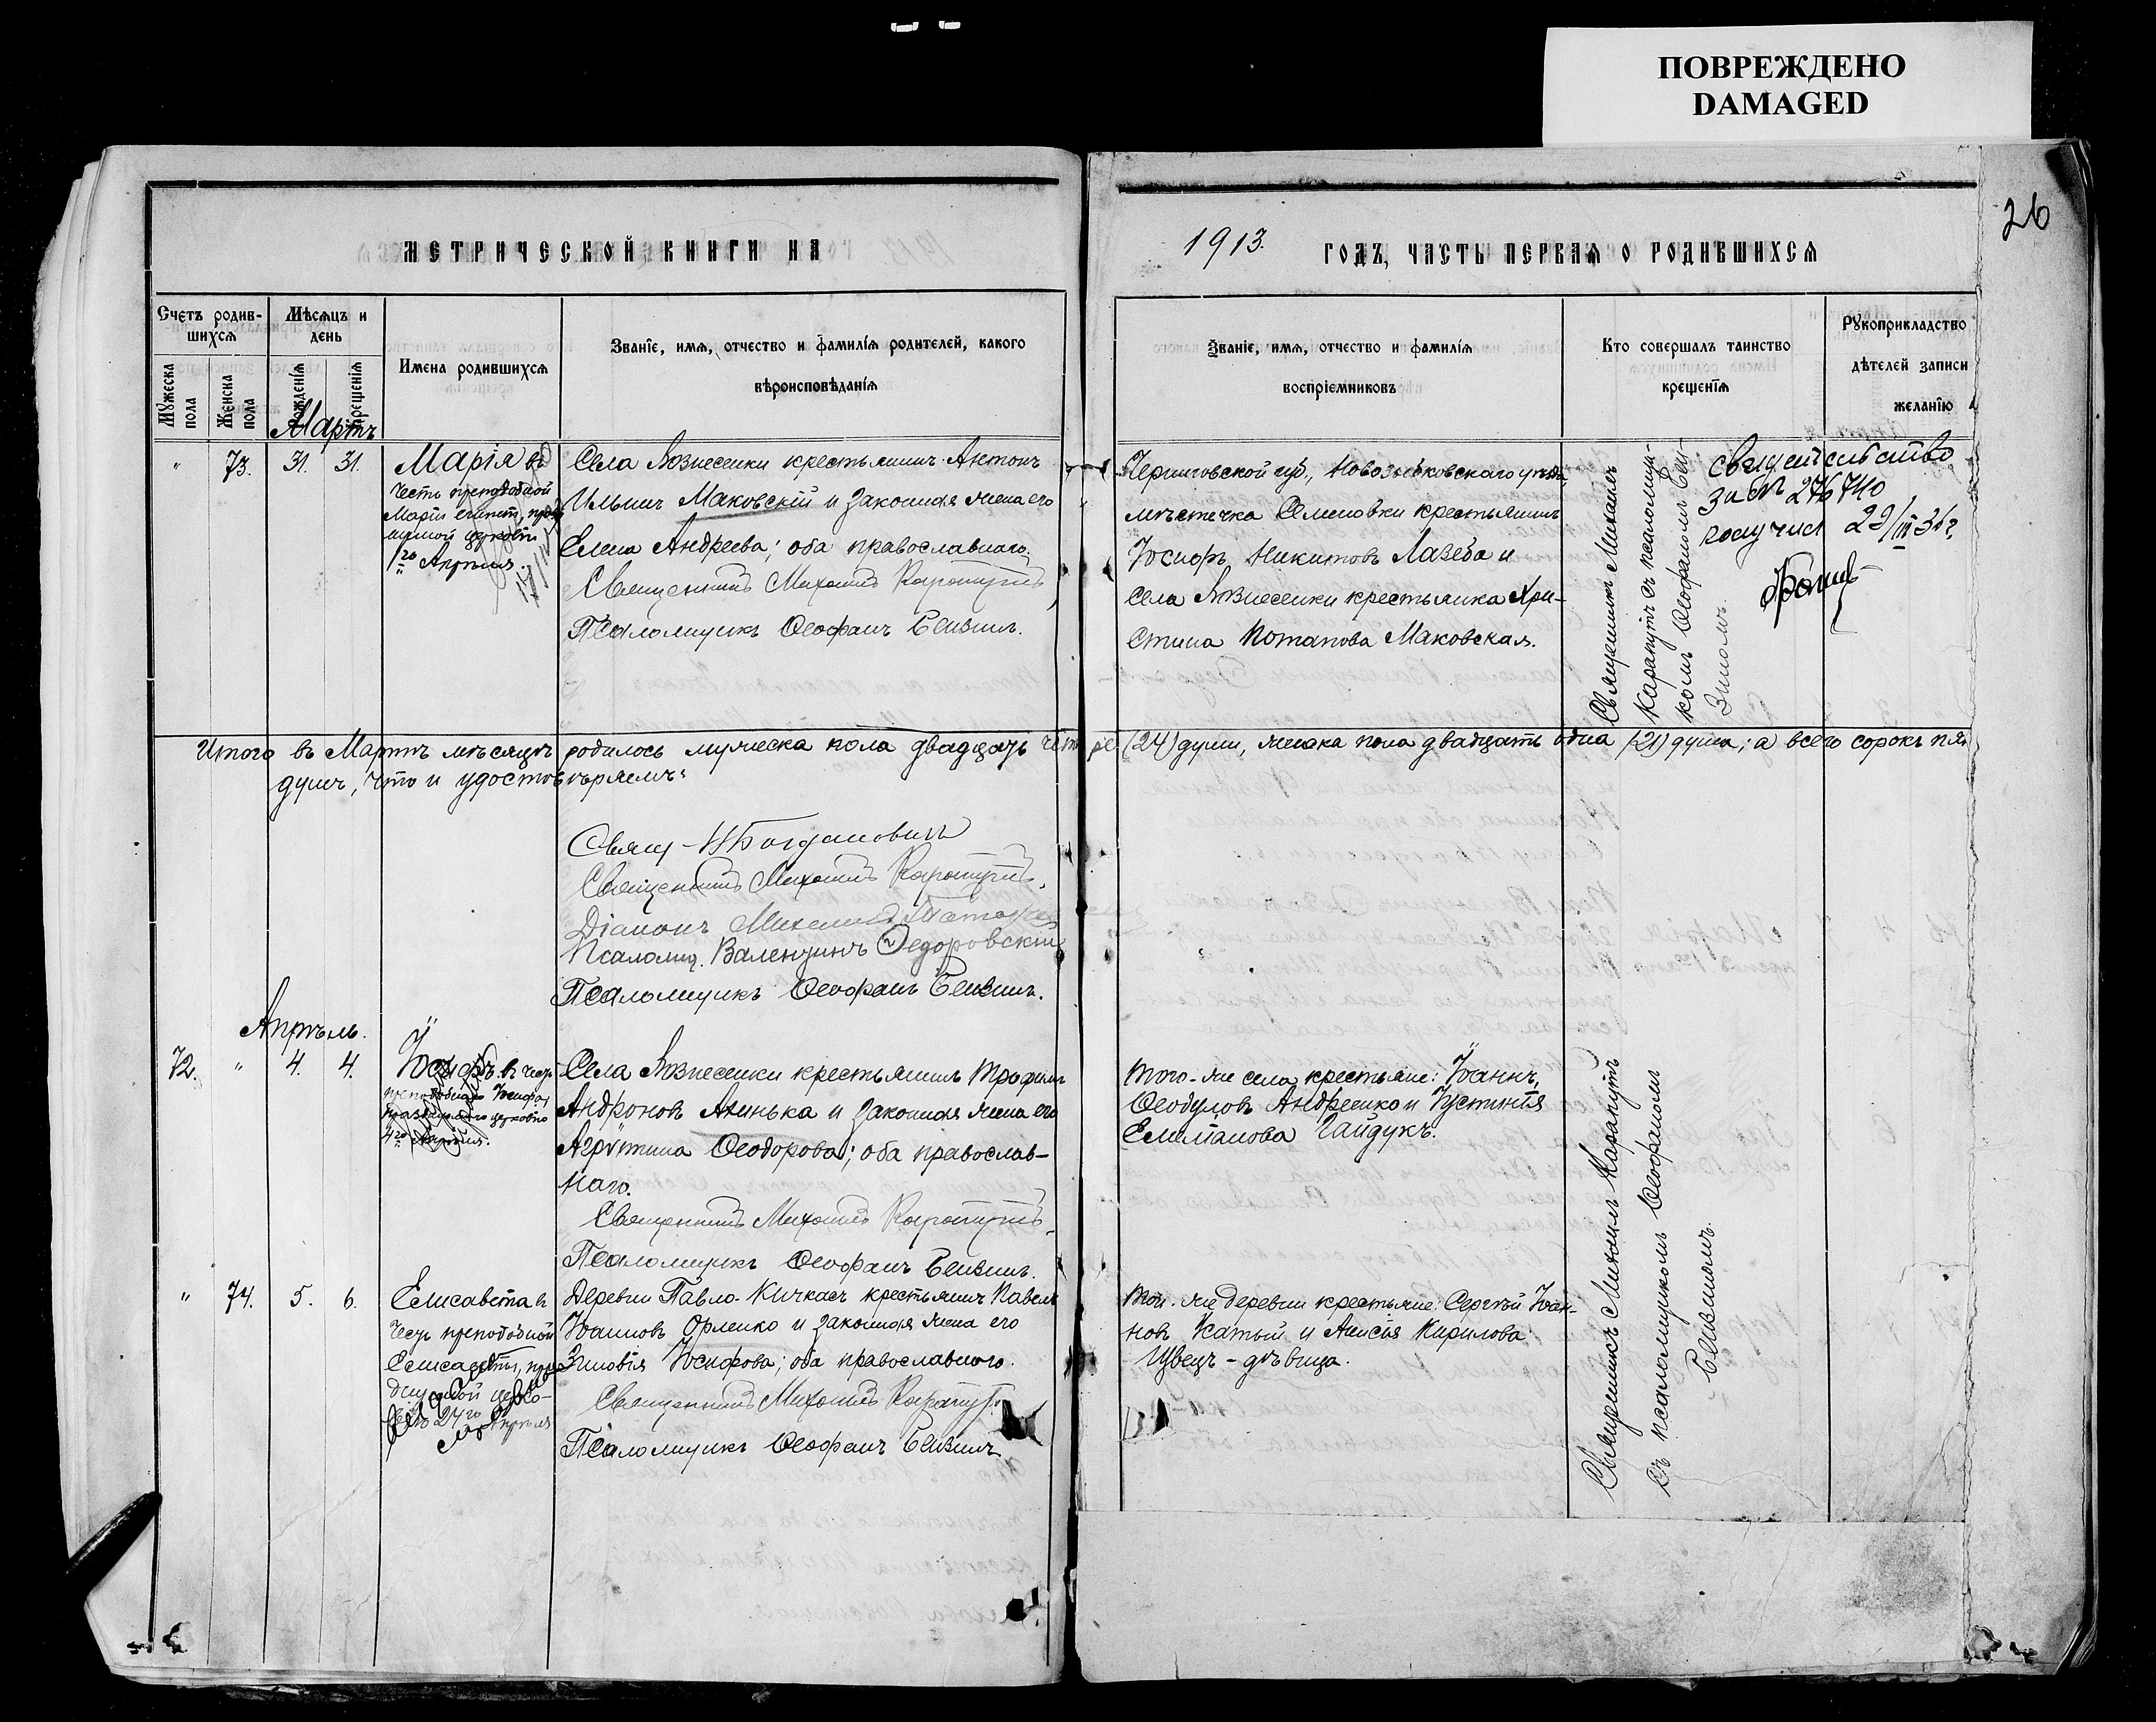 ПОВРЕЖДЕНО
DAMAGED
26
МЕТРИЧЕСКОЙ КНИГИ НА
1913. ГОДЪ, ЧАСТЬ ПЕРВАЯ О РОДИВШИХСЯ
Счетъ родив-
шихся
Мужеска пола
Женска пола
Мѣсяцъ и
день
Рожденія
Крещенія
Имена родившихся
Званіе, имя, отчество и фамилія родителей, какого
вѣроисповѣданія
Званіе, имя, отчество и фамилія
воспріемниковъ
Кто совершалъ таинство
крещенія
Рукоприкладство
дѣтелей записи
желанію
Мартъ
" 73. 31. 31.
Марія въ
честь преподобной
Маріи египет, праз
церковью
1го Апрѣля.
Села Вознесенки крестьянинъ Антонъ
Ильинъ Маковскій и законная жена его
Елена Андреева; оба православнаго.
Священникъ Михаилъ Карапутъ
Псаломщикъ Ѳеофанъ
Черниговской губ., Новозыбковскаго уѣзда,
мѣстечка Семеновки крестьянинъ
Іосифъ Никитовъ Лазеба и
села Вознесенки крестьянка Хри-
стина Потапова Маковская.
Священникъ Михаилъ
Карапутъ съ псаломщи-
комъ Ѳеофаномъ
свидетельство
за № 276740
получил 29/III 31г
Итого въ Мартѣ мѣсяцѣ родилось мужеска пола двадцать четыре (24) души, женска пола двадцать одна (21) душа; а всего сорокъ пят
душъ, что и удостовѣряемъ:
Свящ. Богдановичъ
Священникъ Михаилъ Карапутъ,
Діаконъ
Псаломщ. Валентинъ Ѳедоровскій
Псаломщикъ Ѳеофанъ
Апрѣль.
72. " 4. 4.
Іосифъ въ честь
преподобнаго Іосифа,
церковью
4го Апрѣля.
Села Вознесенки крестьянинъ Трофимъ
Андроновъ и законная жена его
Агриппина Ѳеодорова; оба православ-
наго.
Священникъ Михаилъ Карапутъ,
Псаломщикъ Ѳеофанъ
Того-же села крестьяне: Іоаннъ
Ѳеодуловъ Андреенко и Іустинія
Емиліанова Гайдукъ.
Священникъ Михаилъ Карапутъ
съ псаломщикомъ Ѳеофаномъ
" 74. 5. 6.
Елисавета въ
честь преподобной
Елисаветы, праз
церко-
вью 24го Апрѣля
Деревни Павло-Кичкасъ крестьянинъ Павелъ
Іоанновъ Орленко и законная жена его
Зиновія Іосифова; оба православнаго.
Священникъ Михаилъ Карапутъ
Псаломщикъ Ѳеофанъ
Той-же деревни крестьяне: Сергѣй Іоан-
новъ и Анисія Кирилова
Цвецъ - дѣвица.